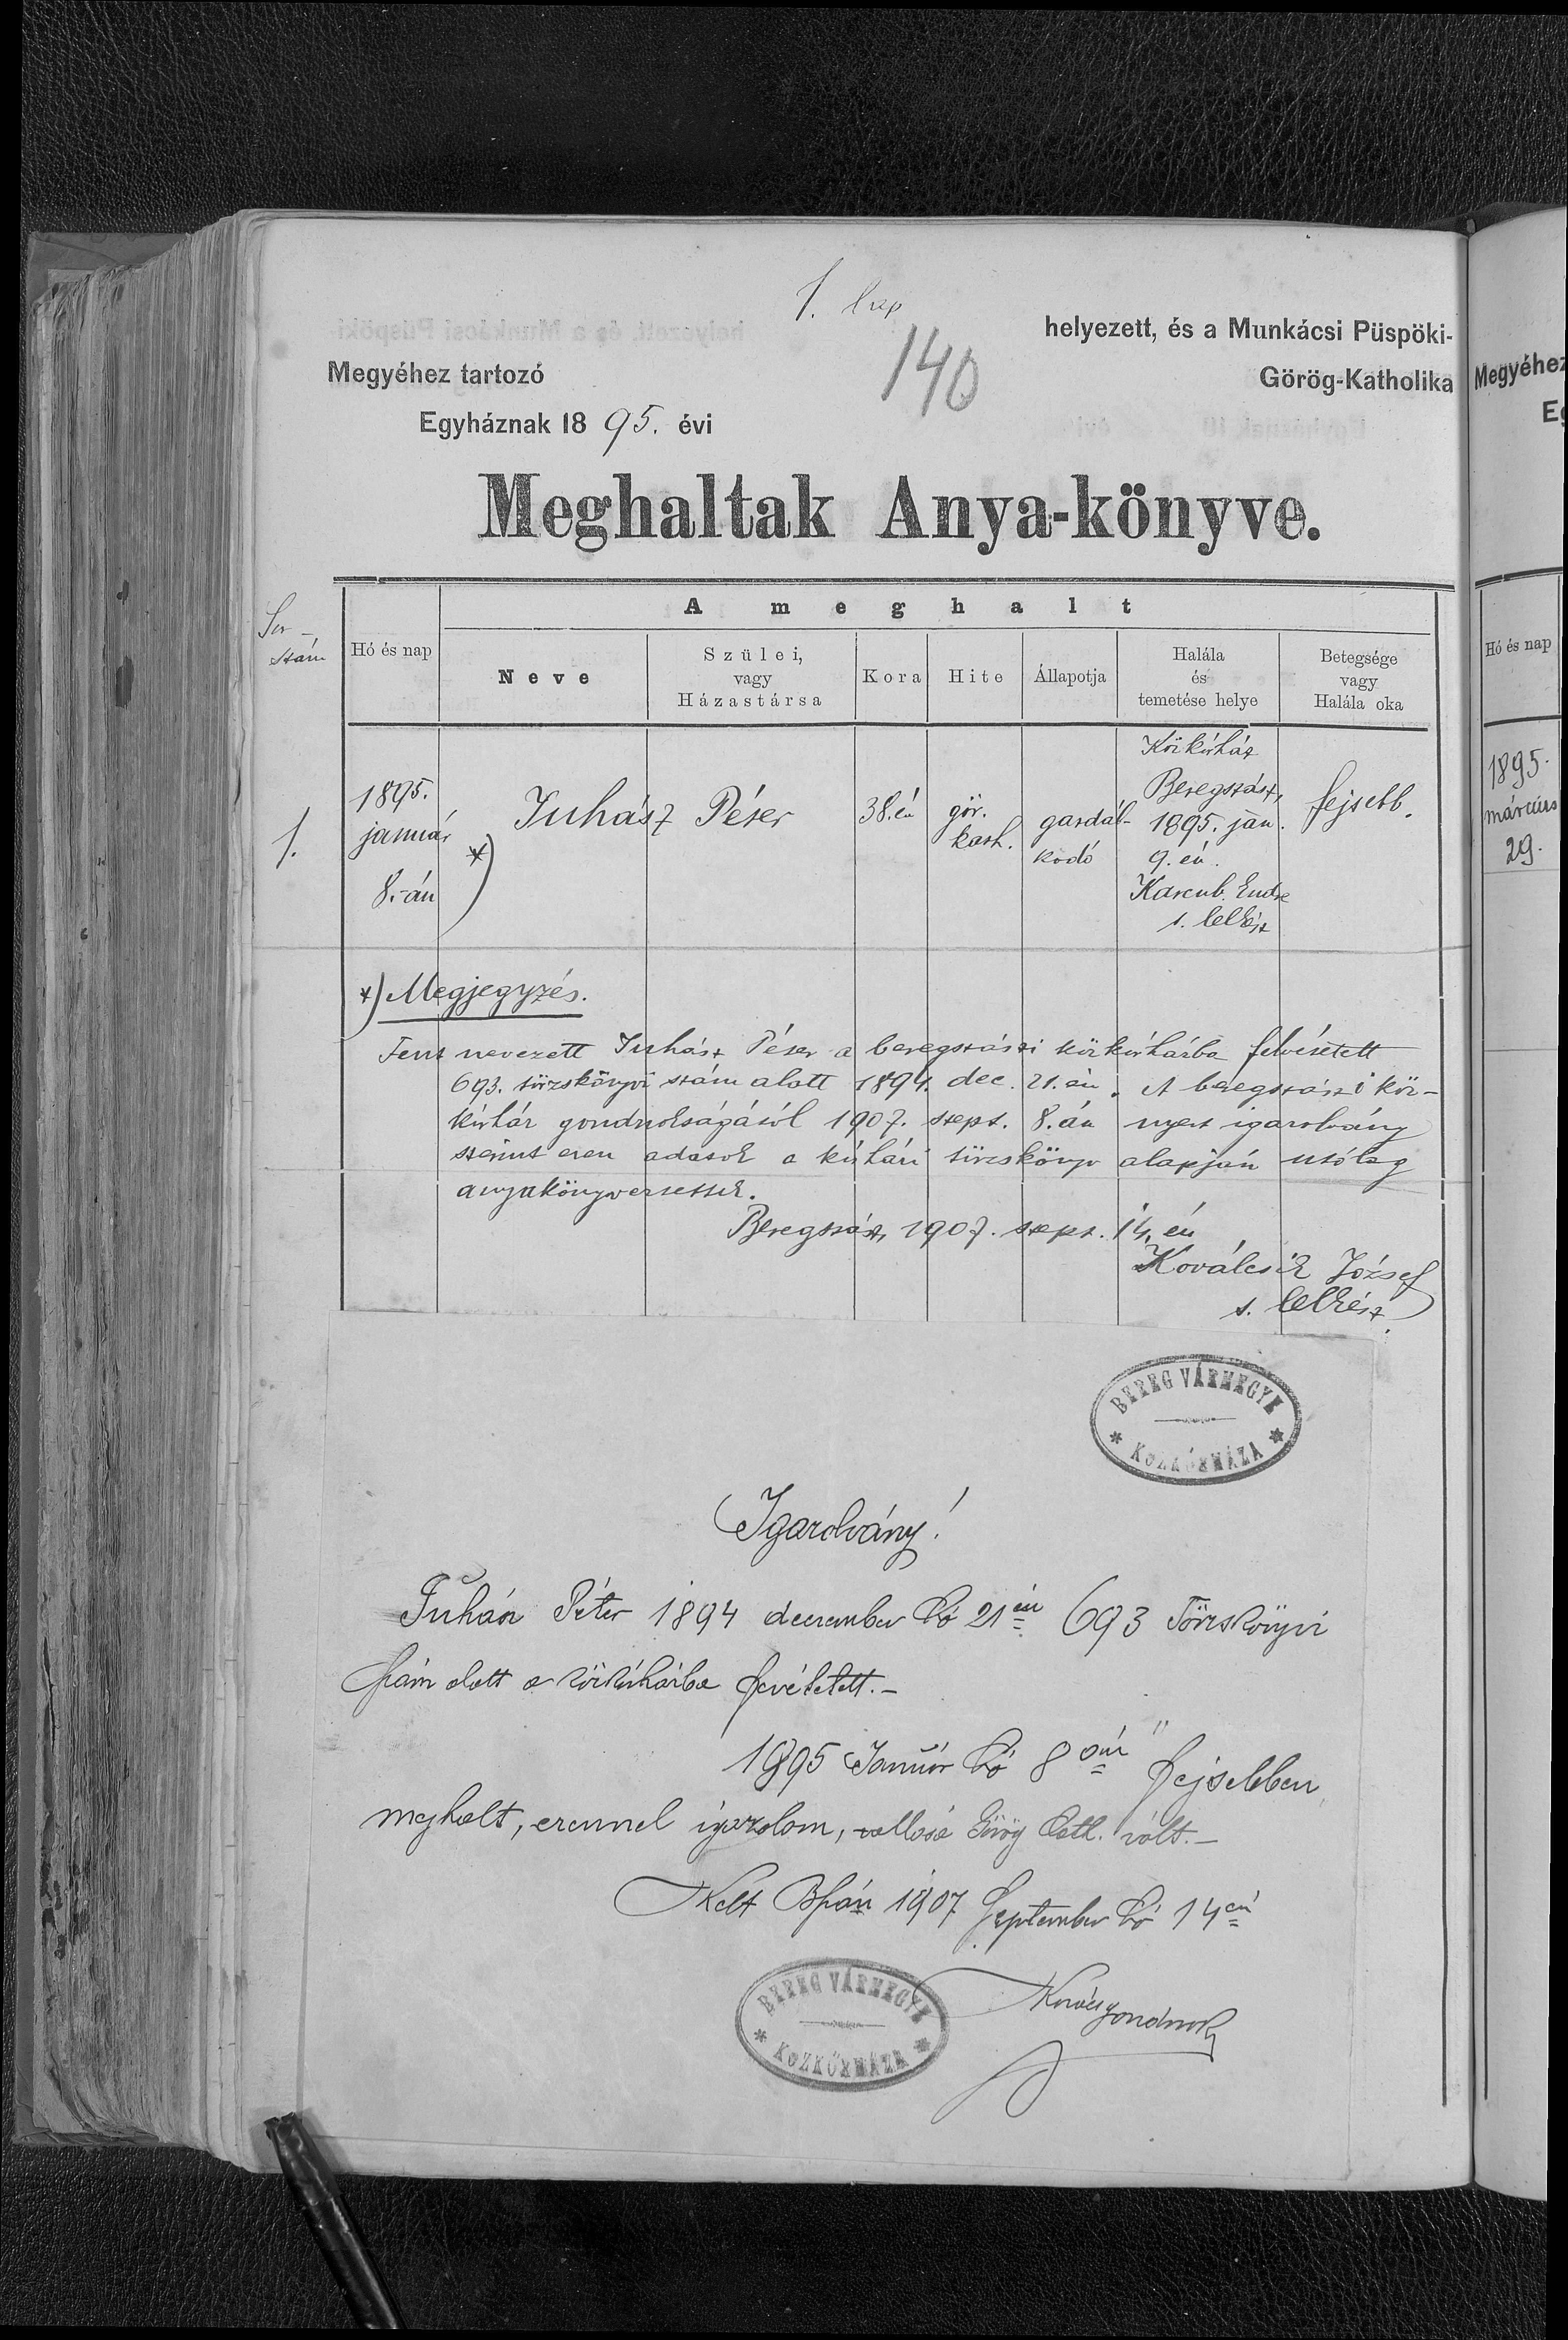 1. lap
140
helyezett, és a Munkácsi Püspöki-
Megyéhez tartozó
Görög-Katholika
Egyháznak 1895. évi
Meghaltak Anya-könyve.
A meghalt
Sor-
szám
Hó és nap
Neve
Szülei,
vagy
Házastársa
Kora
Hite
Állapotja
Halála
és
temetése helye
Betegsége
vagy
Halála oka
1.
1895.
január
8.-án
*)
Juhász Péter
38. év
gör.
kath.
gazdál-
kodó
Közkórház
Beregszász,
1895. jan.
9. én.
Endre
s. lelkész
fejsebb.
*) Megjegyzés.
Fent nevezett Juhász Péter a beregszászi közkórházba felvétetett
693. törzskönyvi szám alatt 1894. dec. 21. én. A beregszászi köz-
kórház gondnokságától 1907. szept. 8. án nyert igazolvány
szerint ezen adatok a kórházi törzskönyv alapján utólag
anyakönyveztettek.
Beregszász, 1907. szept. 14. én
Kováčsik József
s. lelkész.
BEREG VÁRMEGYE
KÖZKÓRHÁZA
Igazolvány!
Juház Péter 1894 deczember hó 21én 693 Törzskönyvi
szám alatt a közkórházba fevétetett.-
1895 Január hó 8án "fejsebben
meghalt, ezennel igazolom, vallása Görög Cath. vólt.-
Kelt Bszász 1907 September hó 14én
gondnok
BEREG VÁRMEGYE
KÖZKÓRHÁZA
Megyéhez
Hó és nap
1895.
március
29.